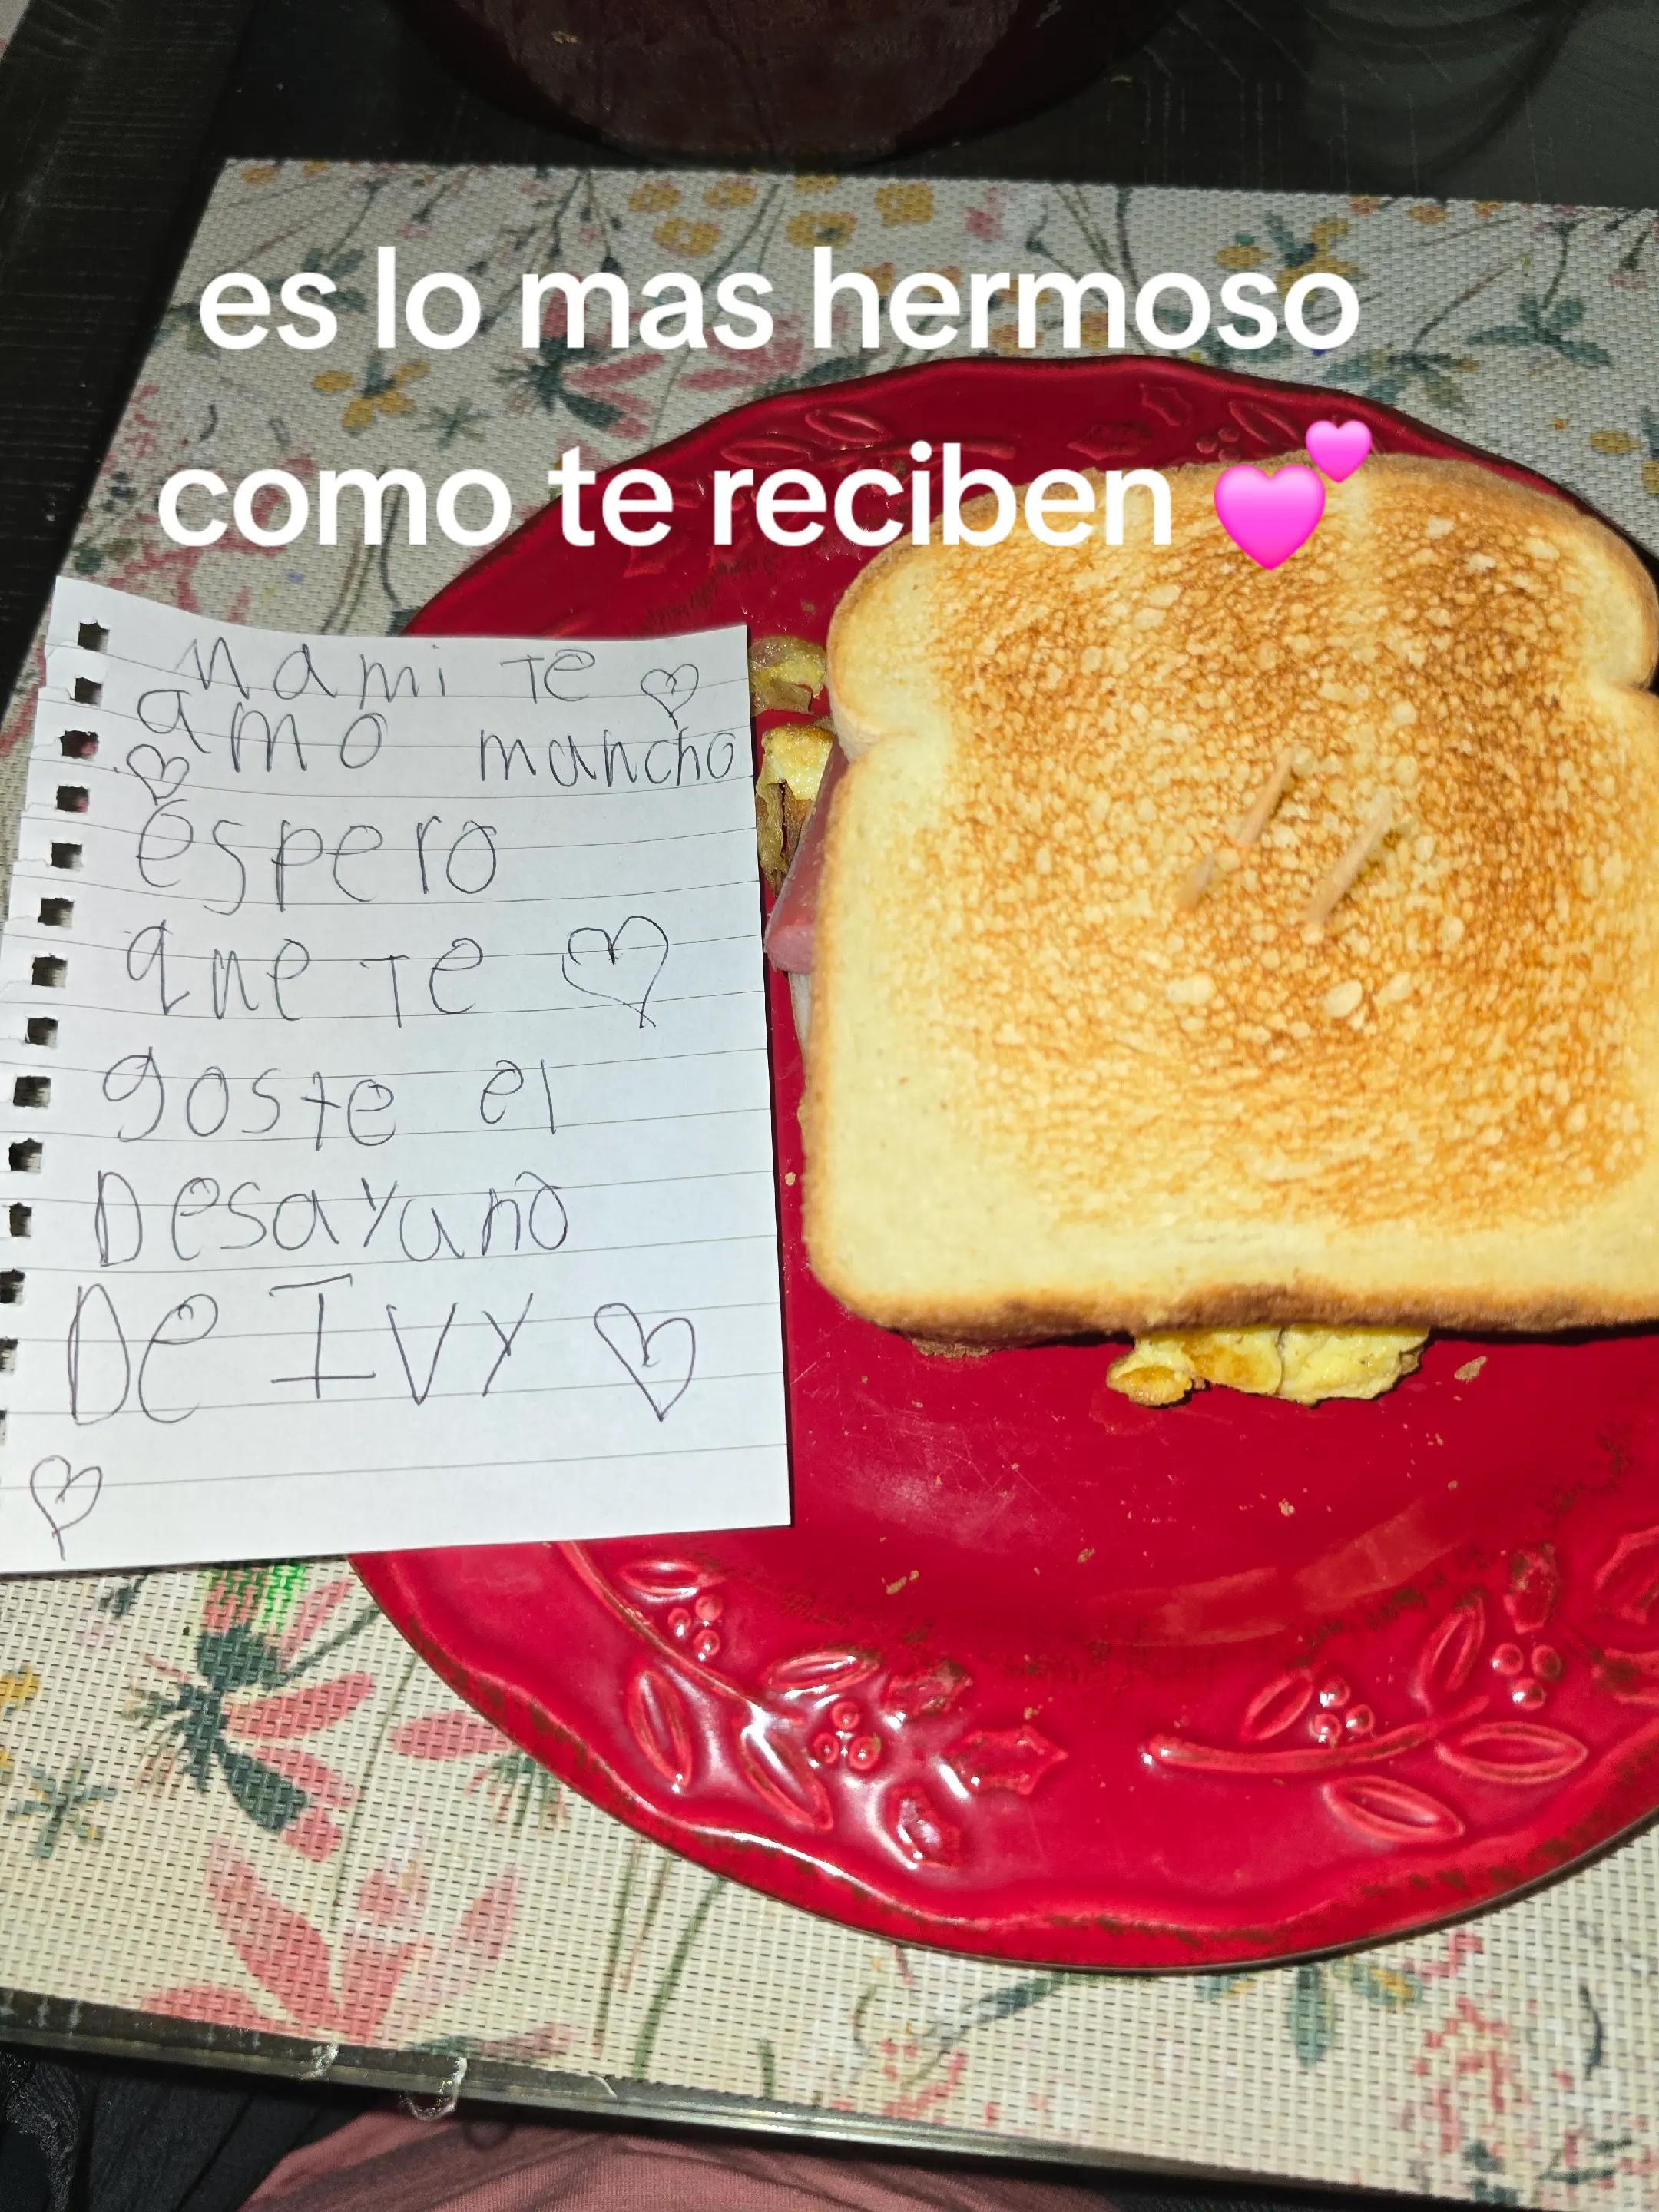 es lo mas hermoso
como te reciben 💕
Mami te
amo mancho
espero
que te
goste el
Desayuno
De IVY